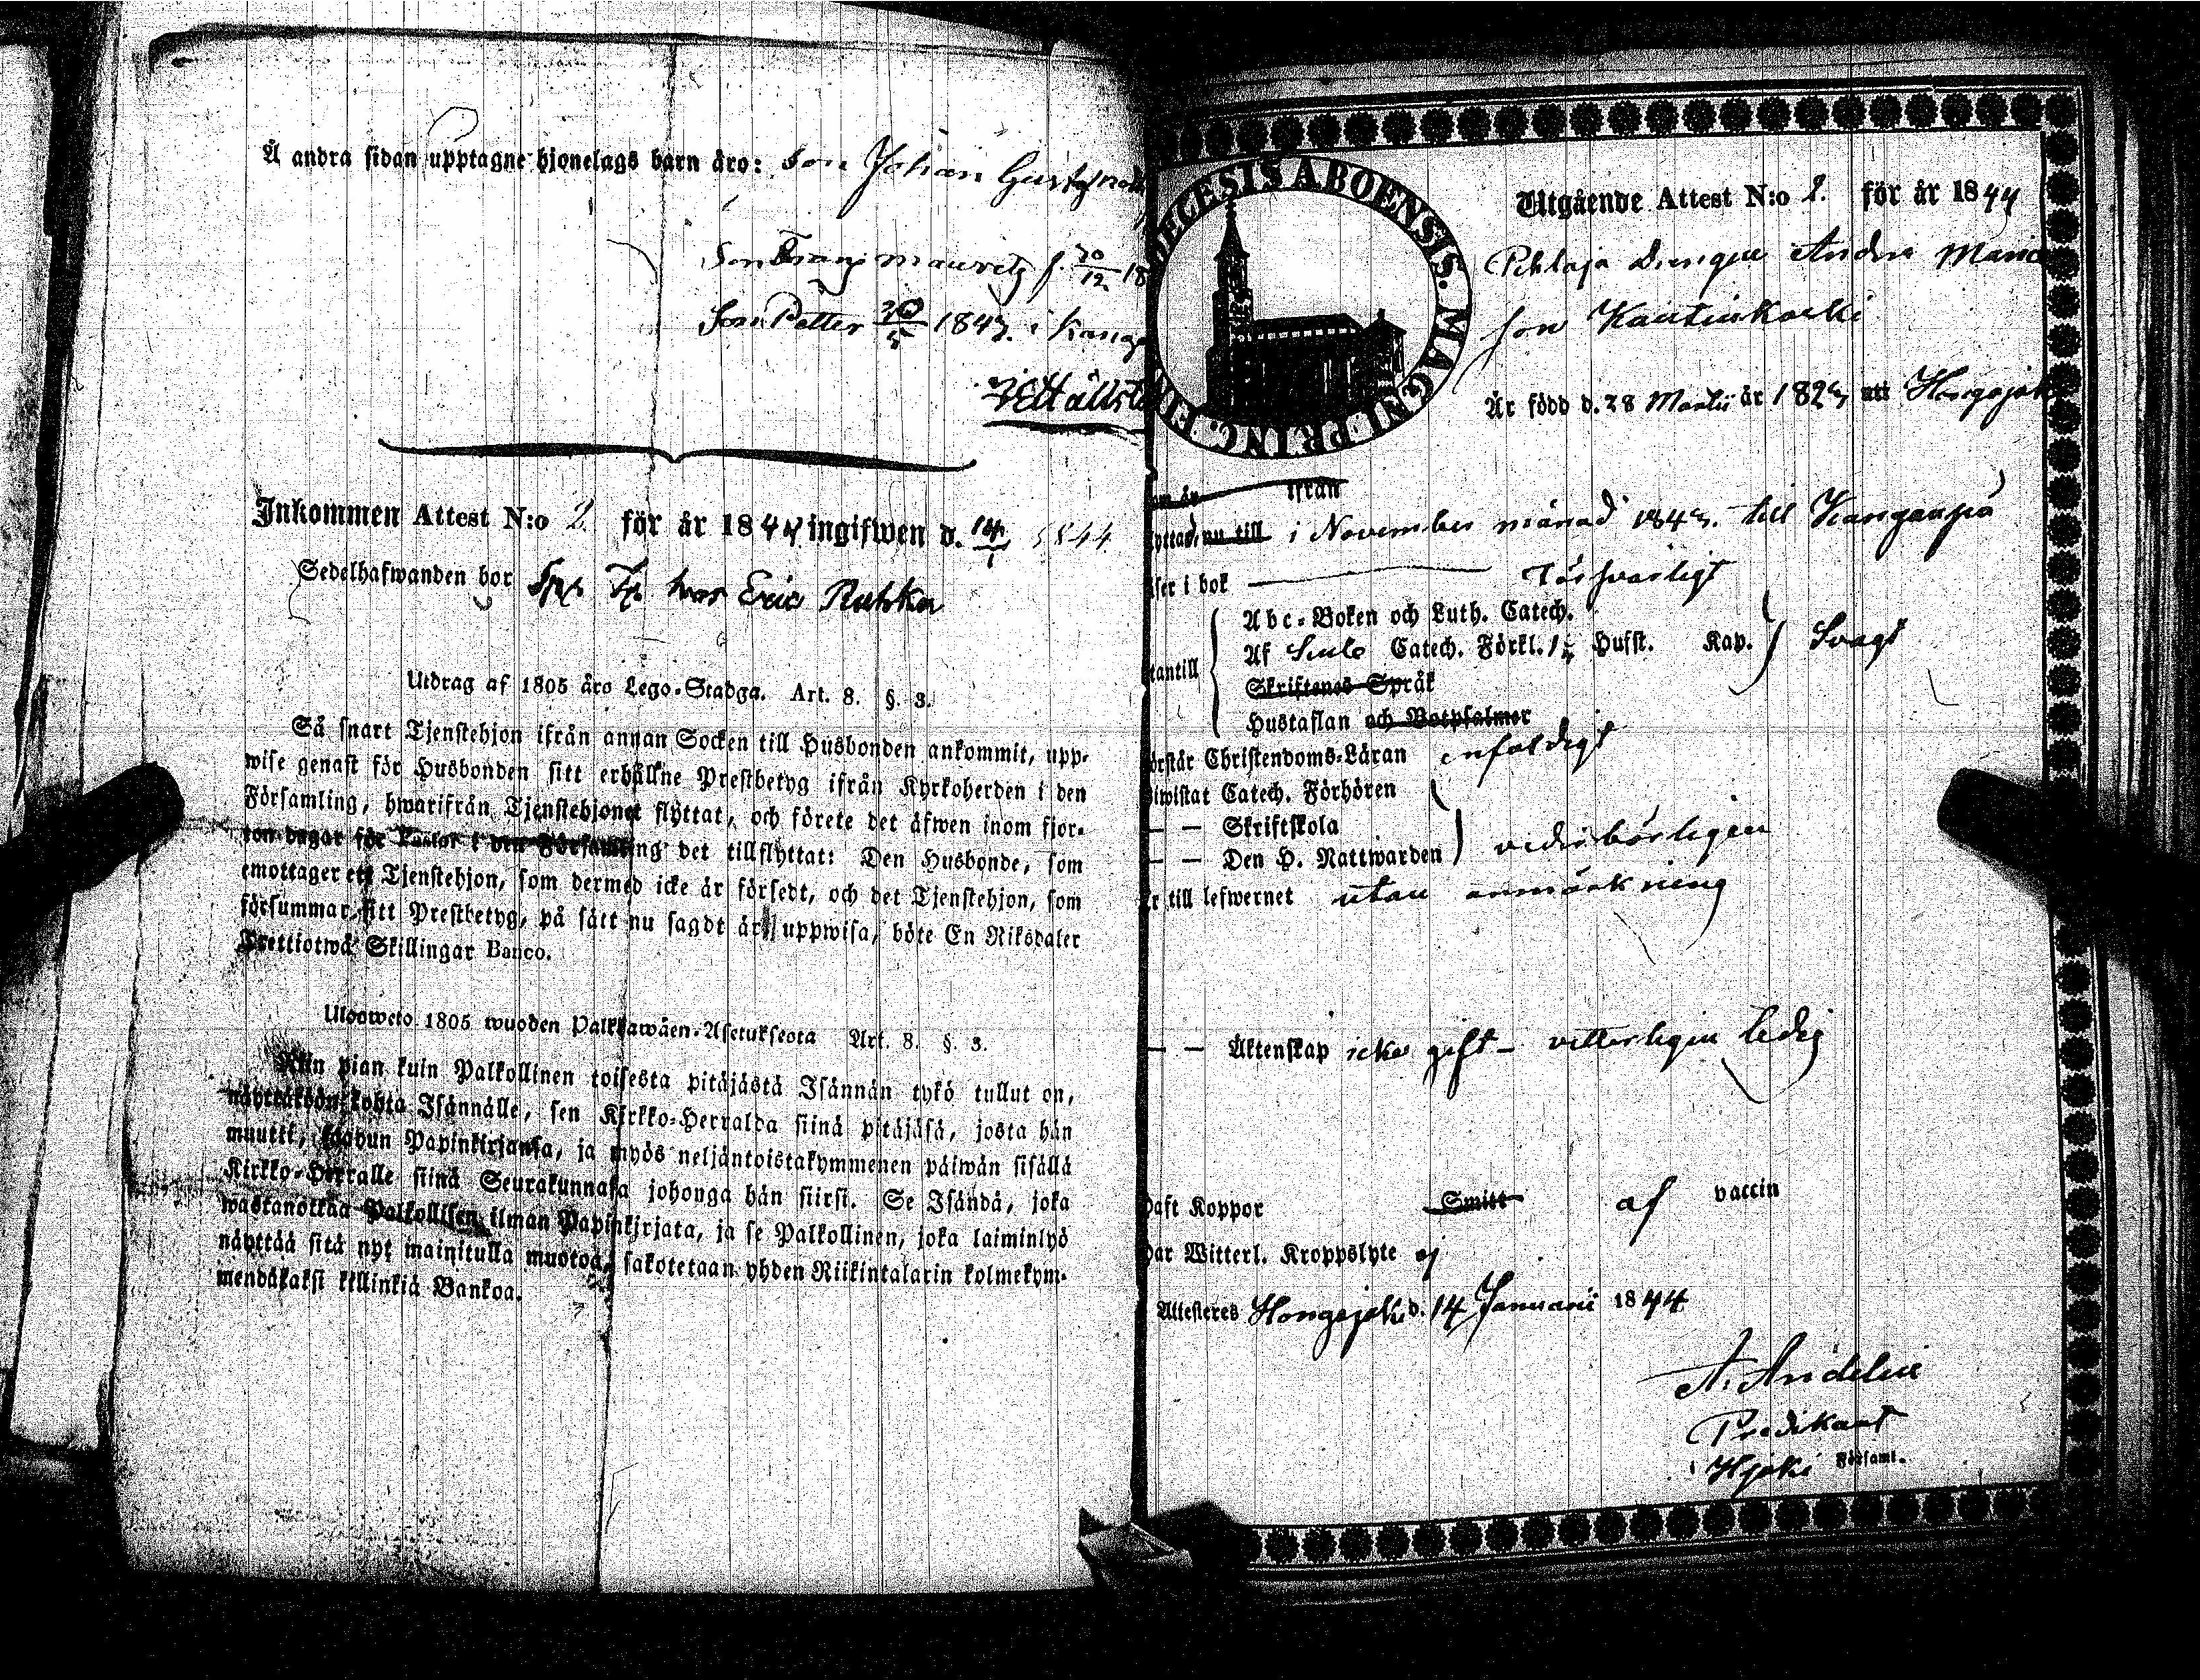 Å andra sidan upptagne hjonelags barn äro: Son Johan Gustaf
Son Frans Mauritz f. 30/12 18
Son Petter 1843. i Kanga
Inkommen Attest N:o 2 för år 1844 ingifwen d. 14/1 1844
Sedelhafwanden bor Eric Ruhka
Utdrag af 1805 års Lego-Stadga. Art. 8. §. 3.
Så snart Tjenstehjon ifrån annan Socken till Husbonden ankommit, upp-
wise genast för Husbonden sitt erhållne Prestbetyg ifrån Kyrkoherden i den
Församling, hwarifrån Tjenstehjonet flyttat, och förete det äfwen inom fjor-
ton dagar för Pastor i den Församling det tillflyttat: Den Husbonde, som
emottager ett Tjenstehjon, som dermed icke är försedt, och det Tjenstehjon, som
försummar sitt Prestbetyg, på sätt nu sagdt är, uppwisa, böte En Riksdaler
Trettiotwå Skillingar Banco.
Ulosweto 1805 wuoden Palkkawäen-Asetuksesta Art. 8. §. 3.
Niin pian kuin Palkollinen toisesta pitäjästä Isännän tykö tullut on,
näyttäköön kohta Isännälle, sen Kirkko-Herralda siinä pitäjäsä, josta hän
muutti, saadun Papinkirjansa, ja myös neljäntoistakymmenen päiwän sisällä
Kirkko-Herralle siinä Seurakunnasa johonga hän siirsi. Se Isändä, joka
wastanottaa Palkollisen ilman Papinkirjata, ja se Palkollinen, joka laiminlyö
näyttää sitä nyt mainitulla muotoa, sakotetaan yhden Riikintalarin kolmekym-
mendäkaksi killinkiä Bankoa.
DIOECESIS ABOENSIS. MAGNI PRINC. FIN
Utgående Attest N:o 2. för år 1844
Pehlaja Drengen Anders
son Kautinkoski
Är född d. 28 Martii år 182 uti Hongojok
om är ifrån
yttad, nu till i November månad 1843. till Kanganpä
äser i bok försvarligt
tantill
Abc-Boken och Luth. Catech.
Af Catech. Förkl. 1 Hufst. Kap. Svagt
Skriftenes Språk
Hustaflan och Botpsalmer
örstår Christendoms-Läran enfaldigt
iwistat Catech. Förhören
— — Skriftskola
— — Den H. Nattwarden vederbörligen
r till lefwernet utan anmärkning
— — Äktenskap icke gift - vetterligen ledig
Haft Koppor Smitt af vaccin
Har Witterl. Kroppslyte ej
Attesteres Hongojoki d. 14 Januarii 1844
A. Andelin
Predikant
i Hjoki Församl.